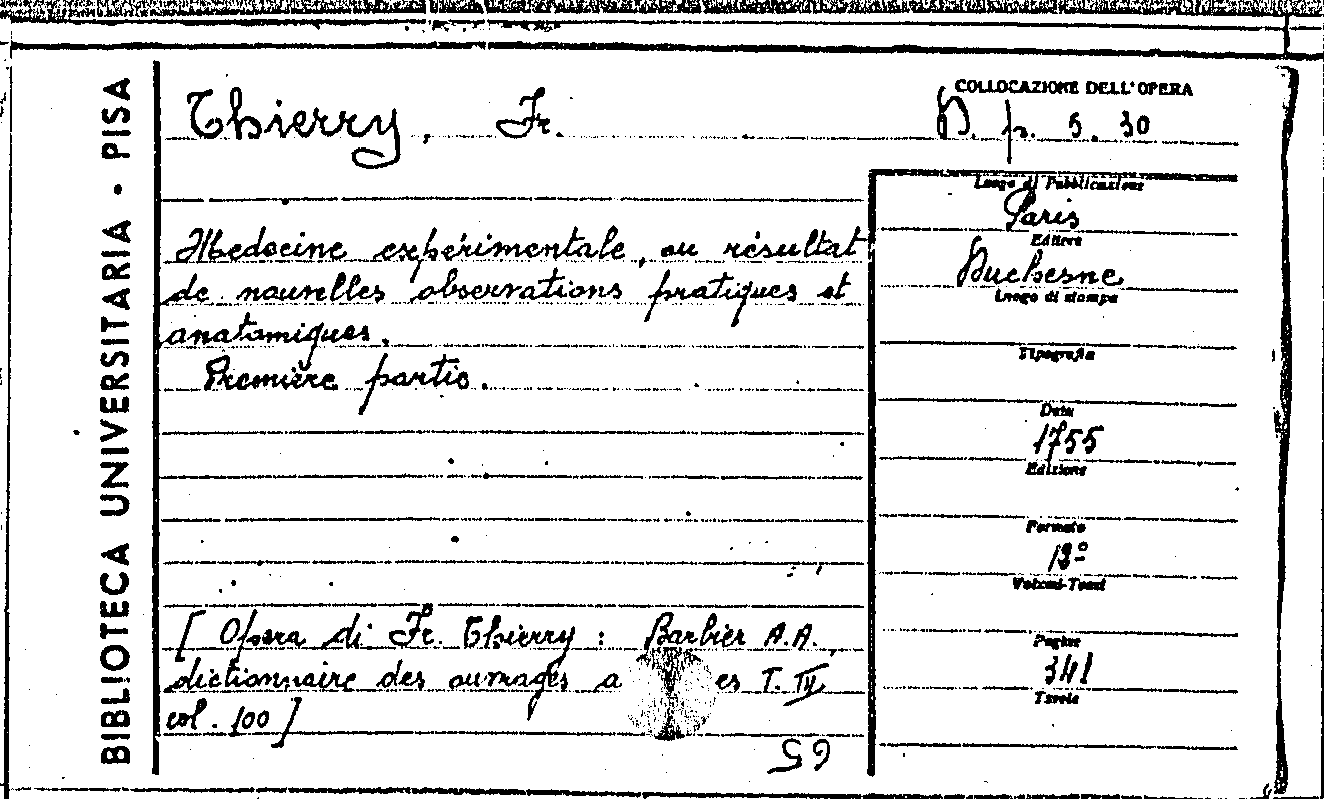 BIBLIOTECA UNIVERSITARIA · PISA
Thierry, Fr.
COLLOCAZIONE DELL'OPERA
D. p. 5. 30
Medecine expérimentale, ou résultat
de nouvelles observations pratiques et
anatomiques.
Première partie.
[ Opera di Fr. Thierry : Barbier A.A.,
dictionnaire des ouvrages a es T. IV
col. 100 ]
59
Luogo di Pubblicazione
Paris
Editore
Duchesne
Luogo di stampa
Tipografia
Data
1755
Edizione
Formato
12º
Volumi-Tomi
Pagine
341
Tavole